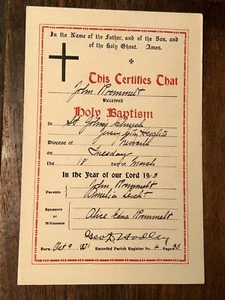 In the Name of the Father, and of the Son, and
of the Holy Ghost. Amen.
This Certifies That
John Rommelt
Received
Holy Baptism
in St. Johns Church
Jersey City Heights
Diocese of Newark
on Tuesday
the 18 day of March
In the Year of our Lord 19
Parents John Rommelt
Amelia
Sponsors or Witnesses
Alice Edna Rommelt
Geo D Hadley
Born Oct 9 Recorded Parish Register No. Page